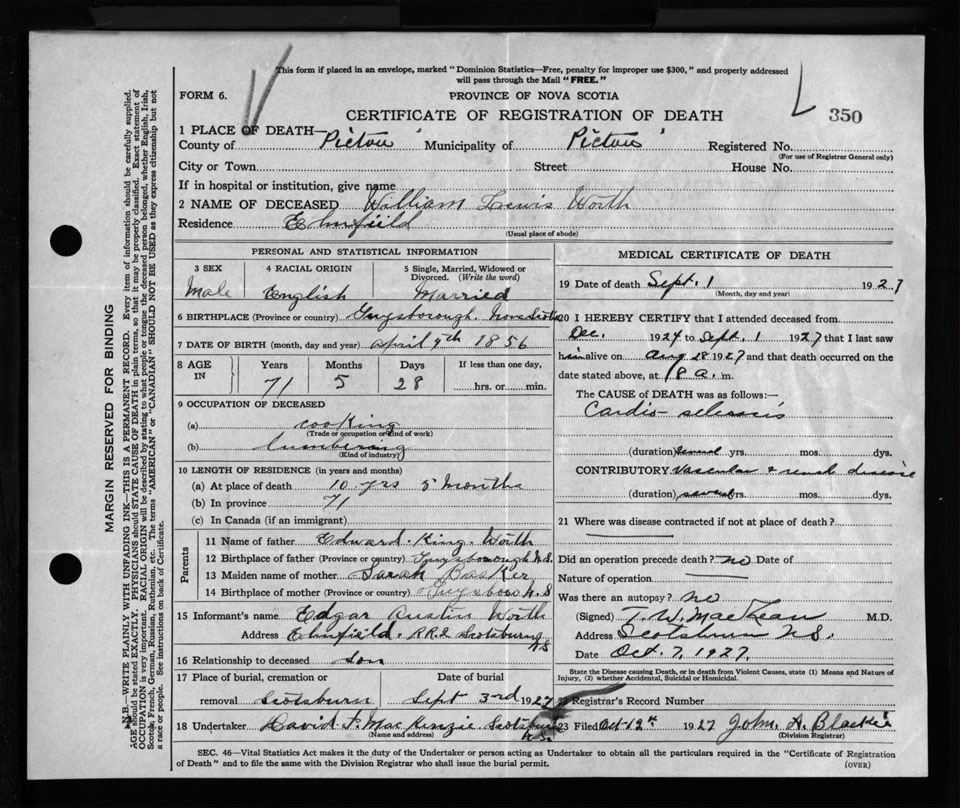 This form if placed in an envelope, marked "Dominion Statistics—Free, penalty for improper use $300," and properly addressed
will pass through the Mail "FREE."
FORM 6.
PROVINCE OF NOVA SCOTIA
CERTIFICATE OF REGISTRATION OF DEATH
350
1 PLACE OF DEATH—
County of Pictou Municipality of Pictou Registered No.
(For use of Registrar General only)
City or Town Street House No.
If in hospital or institution, give name
2 NAME OF DECEASED William Lewis Worth
Residence Elmfield
(Usual place of abode)
PERSONAL AND STATISTICAL INFORMATION
3 SEX
Male
4 RACIAL ORIGIN
English
5 Single, Married, Widowed or
Divorced. (Write the word)
Married
6 BIRTHPLACE (Province or country) Guysborough. Nova Scotia
7 DATE OF BIRTH (month, day and year) April 4th 1856
8 AGE
IN
Years
71
Months
5
Days
28
If less than one day,
hrs. or min.
9 OCCUPATION OF DECEASED
(a) cooking
(Trade or occupation or kind of work)
(b) lumbering
(Kind of industry)
10 LENGTH OF RESIDENCE (in years and months)
(a) At place of death 10 yrs 5 months
(b) In province 71
(c) In Canada (if an immigrant)
Parents
11 Name of father Edward. King. Worth
12 Birthplace of father (Province or country) Guysborough N.S.
13 Maiden name of mother Sarah
14 Birthplace of mother (Province or country) Guysboro N.S
15 Informant's name Edgar Austin Worth
Address Elmfield. R.R.2 Scotsburn N.S
16 Relationship to deceased son
17 Place of burial, cremation or
removal Scotsburn
Date of burial
Sept 3rd 1927
18 Undertaker David F. MacKenzie Scotsburn N.S.
(Name and address)
MEDICAL CERTIFICATE OF DEATH
19 Date of death Sept. 1 1927
(Month, day and year)
20 I HEREBY CERTIFY that I attended deceased from
Dec. 1924 to Sept. 1 1927 that I last saw
him alive on Aug 28 1927 and that death occurred on the
date stated above, at 8 a. m.
The CAUSE of DEATH was as follows:
Cardio-sclerosis
(duration) Several yrs. mos. dys.
CONTRIBUTORY Vascular & renal disease
(duration) several yrs. mos. dys.
21 Where was disease contracted if not at place of death?
Did an operation precede death? no Date of
Nature of operation
Was there an autopsy? no
(Signed) T. W. MacKean M.D.
Address Scotsburn N.S.
Date Oct. 7, 1927.
State the Disease causing Death, or in death from Violent Causes, state (1) Means and Nature of
Injury, (2) whether Accidental, Suicidal or Homicidal.
22 Registrar's Record Number
23 Filed Oct-12th 1927 John. A. Blaikie
(Division Registrar)
SEC. 46—Vital Statistics Act makes it the duty of the Undertaker or person acting as Undertaker to obtain all the particulars required in the "Certificate of Registration
of Death" and to file the same with the Division Registrar who shall issue the burial permit.
(OVER)
MARGIN RESERVED FOR BINDING
N.B.—WRITE PLAINLY WITH UNFADING INK—THIS IS A PERMANENT RECORD. Every item of information should be carefully supplied.
AGE should be stated EXACTLY. PHYSICIANS should STATE CAUSE OF DEATH in plain terms, so that it may be properly classified. Exact statement of
OCCUPATION is very important. RACIAL ORIGIN will be described by stating to what people or tongue the deceased person belonged, whether English, Irish,
Scotch, French, German, Russian, Ruthenian, etc. The terms "AMERICAN" or "CANADIAN" SHOULD NOT BE USED as they express citizenship but not
a race or people. See instructions on back of Certificate.